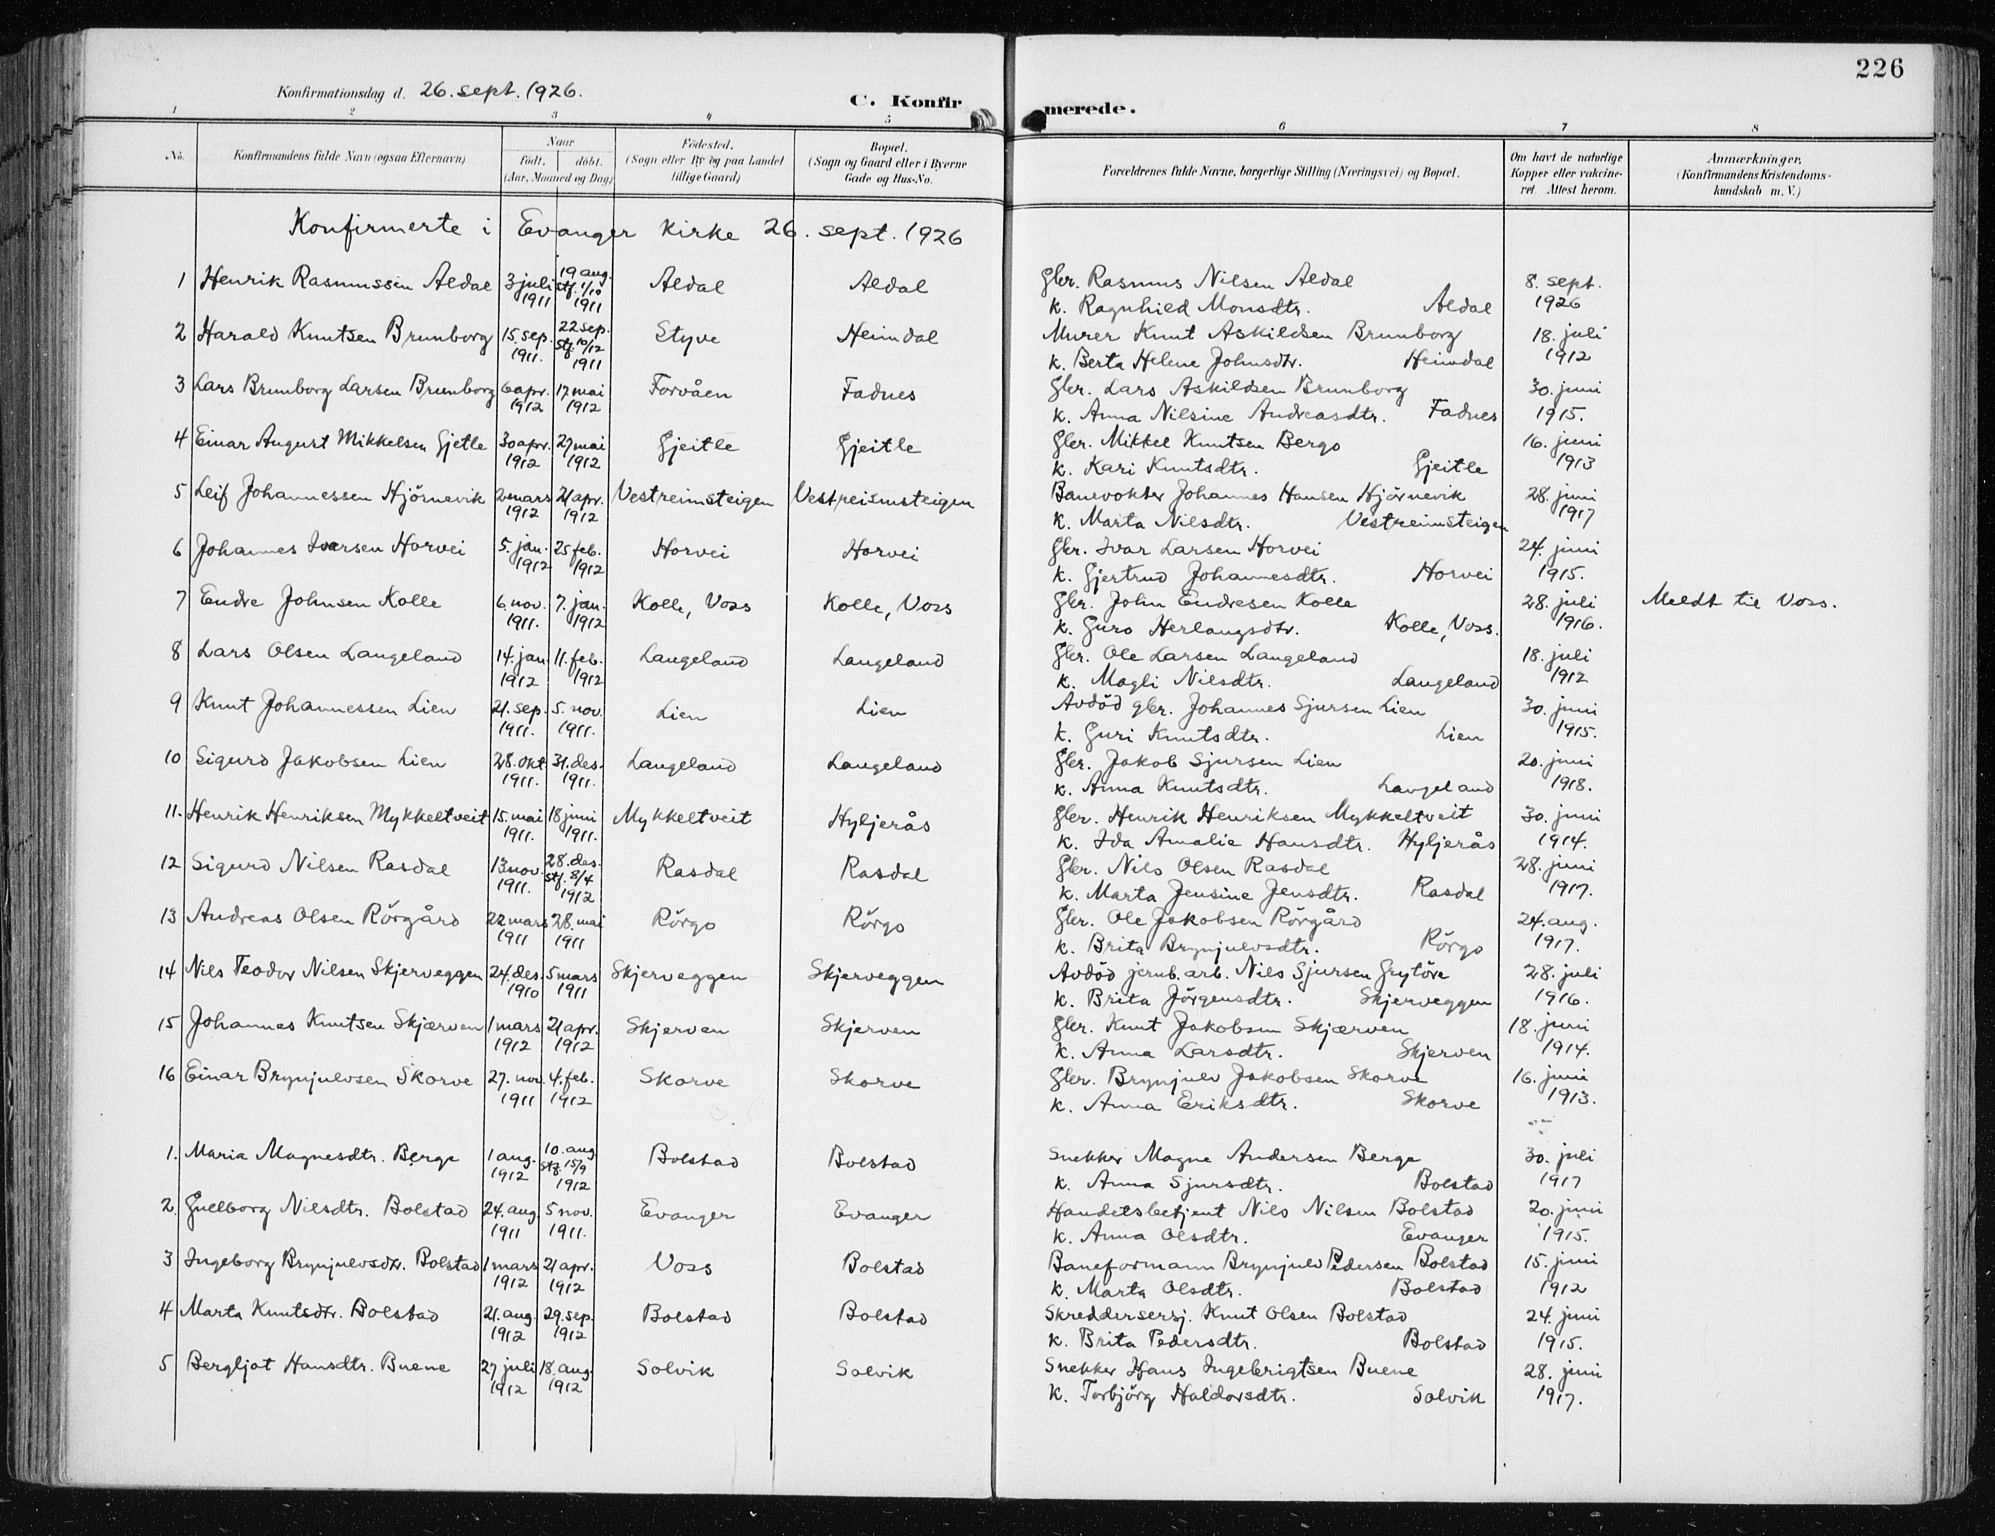 226
Konfirmationsdag d. 26. sept. 1926.
C. Konfirmerede.
1 2 3 4 5 6 7 8
No. Konfirmandens fulde Navn (ogsaa Efternavn) Naar født. døbt. (Aar, Maaned og Dag) Fødested. (Sogn eller By og paa Landet tillige Gaard) Bopæl. (Sogn og Gaard eller i Byerne Gade og Hus-No. Forældrenes fulde Navne, borgerlige Stilling (Næringsvei) og Bopæl. Om havt de naturlige Kopper eller vakcineret. Attest herom. Anmærkninger. (Konfirmandens Kristendomskundskab m. V.)
Konfirmerte i Evanger kirke 26. sept. 1926
1 Henrik Rasmussen Aldal 3 juli 1911 19 aug. stf. 1/10 1911 Aldal Aldal Gbr. Rasmus Nilsen Aldal 8. sept.
k. Ragnhild Monsdtr. Aldal 1926
2 Harald Knutsen Brunborg 15. sep. 1911. 22 sep. stf. 10/12 1911 Styve Heimdal Murer Knut Askildsen Brunborg 18. juli
k. Berta Helene Johnsdtr. Heimdal 1912
3 Lars Brunborg Larsen Brunborg 6 apr. 1912 17 mai 1912 Forvåen Fadnes Gbr. Lars Askildsen Brunborg 30. juni
k. Anna Nilsine Andreasdtr. Fadnes 1915.
4 Einar August Mikkelsen Gjetle 30 apr. 1912 27 mai 1912 Gjeitle Gjeitle Gbr. Mikkel Knutsen Bergo 16. juni
k. Kari Knutsdtr. Gjeitle 1913
5 Leif Johannessen Hjörnevik 2 mars 1912 21 apr. 1912 Vestreimsteigen Vestreismsteigen Banevokter Johannes Hansen Hjörnevik 28. juni
k. Marta Nilsdtr. Vestreimsteigen 1917
6 Johannes Ivarsen Horvei 5. jan. 1912 25 feb. 1912 Horvei Horvei Gbr. Ivar Larsen Horvei 24. juni
k. Gjertrud Johannesdtr. Horvei 1915.
7 Endre Johnsen Kolle 6. nov. 1911. 7. jan. 1912 Kolle, Voss Kolle, Voss Gbr. John Endresen Kolle 28. juli Meldt til Voss.
k. Guro Herlaugsdtr. Kolle, Voss. 1916.
8 Lars Olsen Langeland 14. jan. 1912 11. feb. 1912 Langeland Langeland Gbr. Ole Larsen Langeland 18. juli
k. Magli Nilsdtr. Langeland 1912
9 Knut Johannessen Lien 21. sep. 1911. 5. nov. 1911. Lien Lien Avdöd gbr. Johannes Sjursen Lien 30. juni
k. Guri Knutsdtr. Lien 1915.
10 Sigurd Jakobsen Lien 28. okt 1911. 31. des. 1911. Langeland Langeland Gbr. Jakob Sjursen Lien 20. juni
k. Anna Knutsdtr. Langeland 1918.
11. Henrik Henriksen Mykkeltveit 15. mai 1911. 18 juni 1911. Mykkeltveit Hyljerås Gbr. Henrik Henriksen Mykkeltveit 30. juni
k. Ida Amalie Hansdtr. Hyljerås 1914.
12 Sigurd Nilsen Rasdal 13 nov. 1911. 28. des. stf. 8/4 1912 Rasdal Rasdal Gbr. Nils Olsen Rasdal 28. juni
k. Marta Jensine Jensdtr. Rasdal 1917.
13 Andreas Olsen Rörgård 22 mars 1911 28. mai 1911 Rörgo Rörgo Gbr. Ole Jakobsen Rörgård 24. aug.
k. Brita Brynjulvsdtr. Rörgo 1917.
14 Nils Teodor Nilsen Skjerveggen 24 des. 1910 5 mars 1911 Skjerveggen Skjerveggen Avdöd jernb. arb. Nils Sjursen Grytöra 28. juli
k. Brita Jörgensdtr. Skjerveggen 1916.
15 Johannes Knutsen Skjærven 1 mars 1912 21 apr. 1912 Skjerven Skjerven Gbr. Knut Jakobsen Skjærven 18. juni
k. Anna Larsdtr. Skjerven 1914.
16 Einar Brynjulvsen Skorve 27. nov. 1911 4. feb. 1912 Skorve Skorve Gbr. Brynjulv Jakobsen Skorve 16. juni
k. Anna Eriksdtr. Skorve 1913.
1. Maria Magnesdtr. Berge 1 aug. 1912 10. aug stf. 15/9 1912 Bolstad Bolstad Snekker Magne Andersen Berge 30. juli
k. Anna Sjursdtr. Bolstad 1917
2. Guelborg Nilsdtr. Bolstad 24. aug. 1911 5 nov. 1911. Evanger Evanger Handelsbetjent Nils Nilsen Bolstad 20. juni
k. Anna Olsdtr. Evanger 1915.
3 Ingeborg Brynjulvsdtr. Bolstad 1 mars 1912 21 apr. 1912 Voss Bolstad Baneformann Brynjulv Pedersen Bolstad 15. juni
k. Marta Olsdtr. Bolstad 1912
4 Marta Knutsdtr. Bolstad 21. aug. 1912 29. sep. 1912 Bolstad Bolstad Skreddersersj. Knut Olsen Bolstad 24. juni
k. Brita Pedersdtr. Bolstad 1915.
5 Bergljot Hansdtr. Buene 27 juli 1912 18. aug. 1912 Solvik Solvik Snekker Hans Ingebrigtsen Buene 28. juni
k. Torbjörg Haldorsdtr. Solvik 1917.